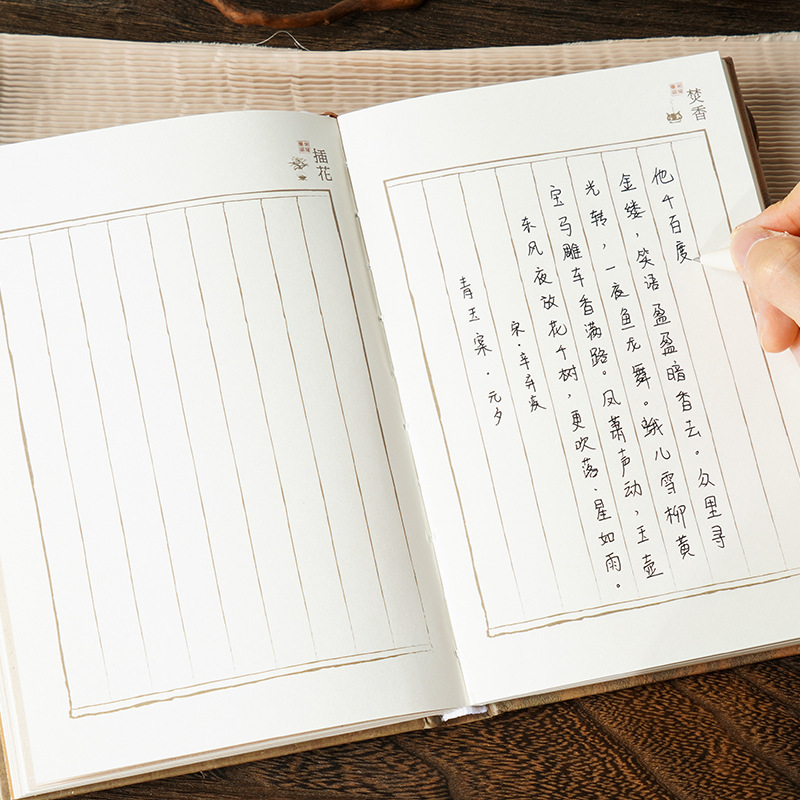 插花
焚香
青玉案·元夕
宋·辛弃疾
东风夜放花千树，更吹落.星如雨。
宝马雕车香满路。凤萧声动，玉壶
光转，一夜鱼龙舞。蛾儿雪柳黄
金缕，笑语盈盈暗香去。众里寻
他千百度